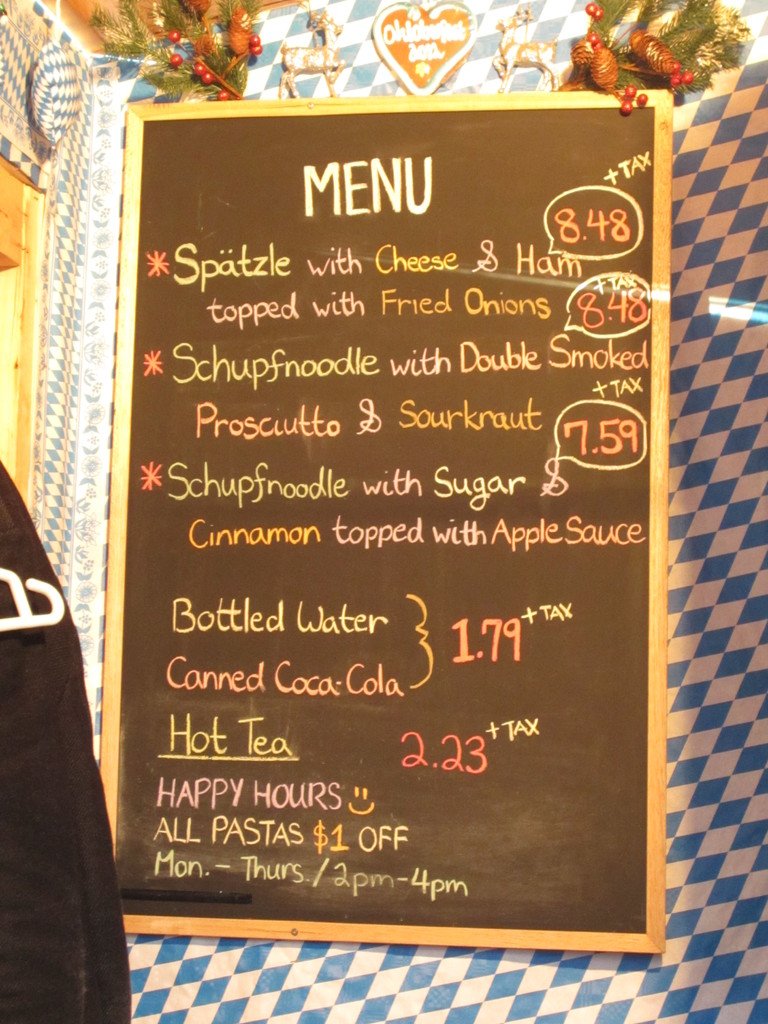 Oktoberfest
MENU
+ TAX
8.48
* Spätzle with Cheese & Ham
topped with Fried Onions
+ TAX
8.48
* Schupfnoodle with Double Smoked
+ TAX
Prosciutto & Sourkraut
7.59
* Schupfnoodle with Sugar &
Cinnamon topped with Apple Sauce
Bottled Water } 1.79 + TAX
Canned Coca-Cola
Hot Tea 2.23 + TAX
HAPPY HOURS
ALL PASTAS $1 OFF
Mon. - Thurs. / 2pm-4pm